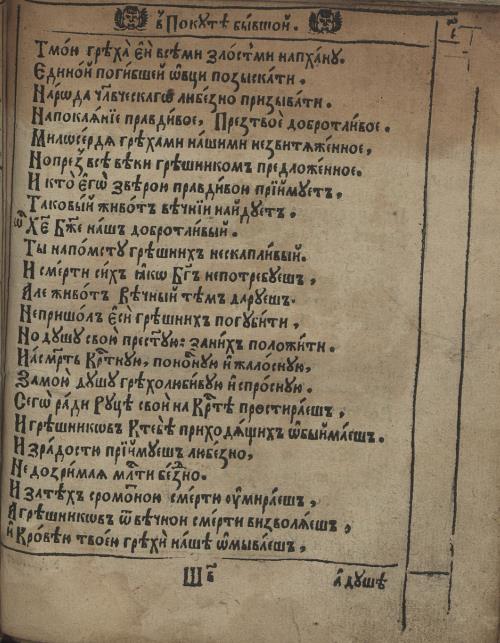 в̾ Покꙋтѣ бы́вшой.
Тмою̀ грѣха̀ є҆ѝ всѣми злость́ми напха́нꙋ.
Єдино́й погибшей ѡ҆́вци позыска́ти.
Наро́да чл҃вческагѡ любе́зно призыва́ти.
Напокая́нїе правди́вое, През̾твоѐ добротли́вое.
Милѡсе́рдѧ грѣ́хами на́шими незвитѧже́нное,
Нопрез̾ всѣ̀ вѣ́ки грѣ́шникомъ предложе́нное.
И кто̀ є҆гѡ̀ звѣ́рою правди́вою прїи́мꙋетъ,
Таковый живо́тъ вѣ́чнїи на́йдꙋетъ.
ѿ Хе҃ Бж҃е на́шъ добротли́вый.
Ты напо́мстꙋ грѣ́шнихъ нескапли́вый.
И сме́рти си́хъ ꙗ҆́кѡ Бг҃ъ непотребꙋешъ,
Але живо́тъ Вѣ́чный тѣ́мъ дарꙋешъ.
Непришо́лъ є҆сѝ грѣ́шнихъ погꙋби́ти,
Но дꙋшꙋ свою̀ прест҃ꙋю: зани́хъ положи́ти.
И на́смр҃ть Кр҃тнꙋю, поно́снꙋю и҆ жало́снꙋю,
Замою̀ дꙋшꙋ грѣхолюби́вꙋю и҆ спро́снꙋю.
Сегѡ̀ ра́ди Рꙋцѣ̀ своѝ на Кр҃тѣ простира́ешъ,
И грѣ́шниковъ Ктебѣ̀ приходѧ́щихъ ѡ҆быйма́ешъ.
И зра́дости прїи́мꙋешъ любе́зно,
Недозри́мая мл҃ти бе́зно.
И затѣ́хъ сромо́тною сме́рти ᲂу҆мира́ешъ,
А грѣ́шниковъ ѿ вѣ́чнои сме́рти визволѧ́ешъ,
и҆ Кро́вѣю твое́ю грѣхѝ на́шѣ ѡ҆мыва́ешъ,
Ш в҃
а҆ дꙋшѣ